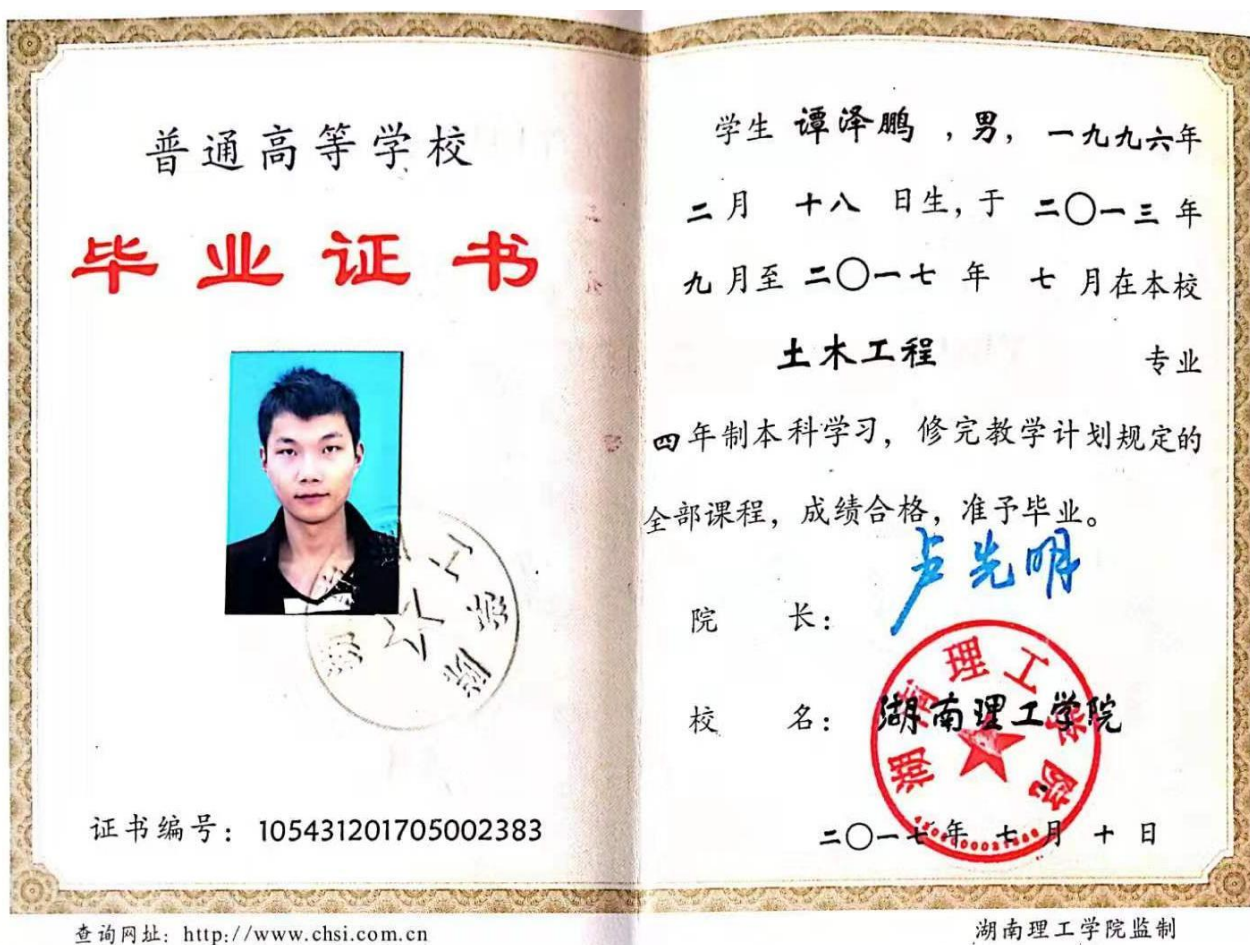 普通高等学校
毕业证书
湖 工 学 院
证书编号：105431201705002383
查询网址：http://www.chsi.com.cn
学生 谭泽鹏 ，男，一九九六年
二月 十八 日生，于 二〇一三 年
九月至 二〇一七 年 七 月在本校
土木工程 专业
四年制本科学习，修完教学计划规定的
全部课程，成绩合格，准予毕业。
院 长：卢先明
校 名：湖南理工学院
湖南理工学院
二〇一七年 七月 十 日
湖南理工学院监制